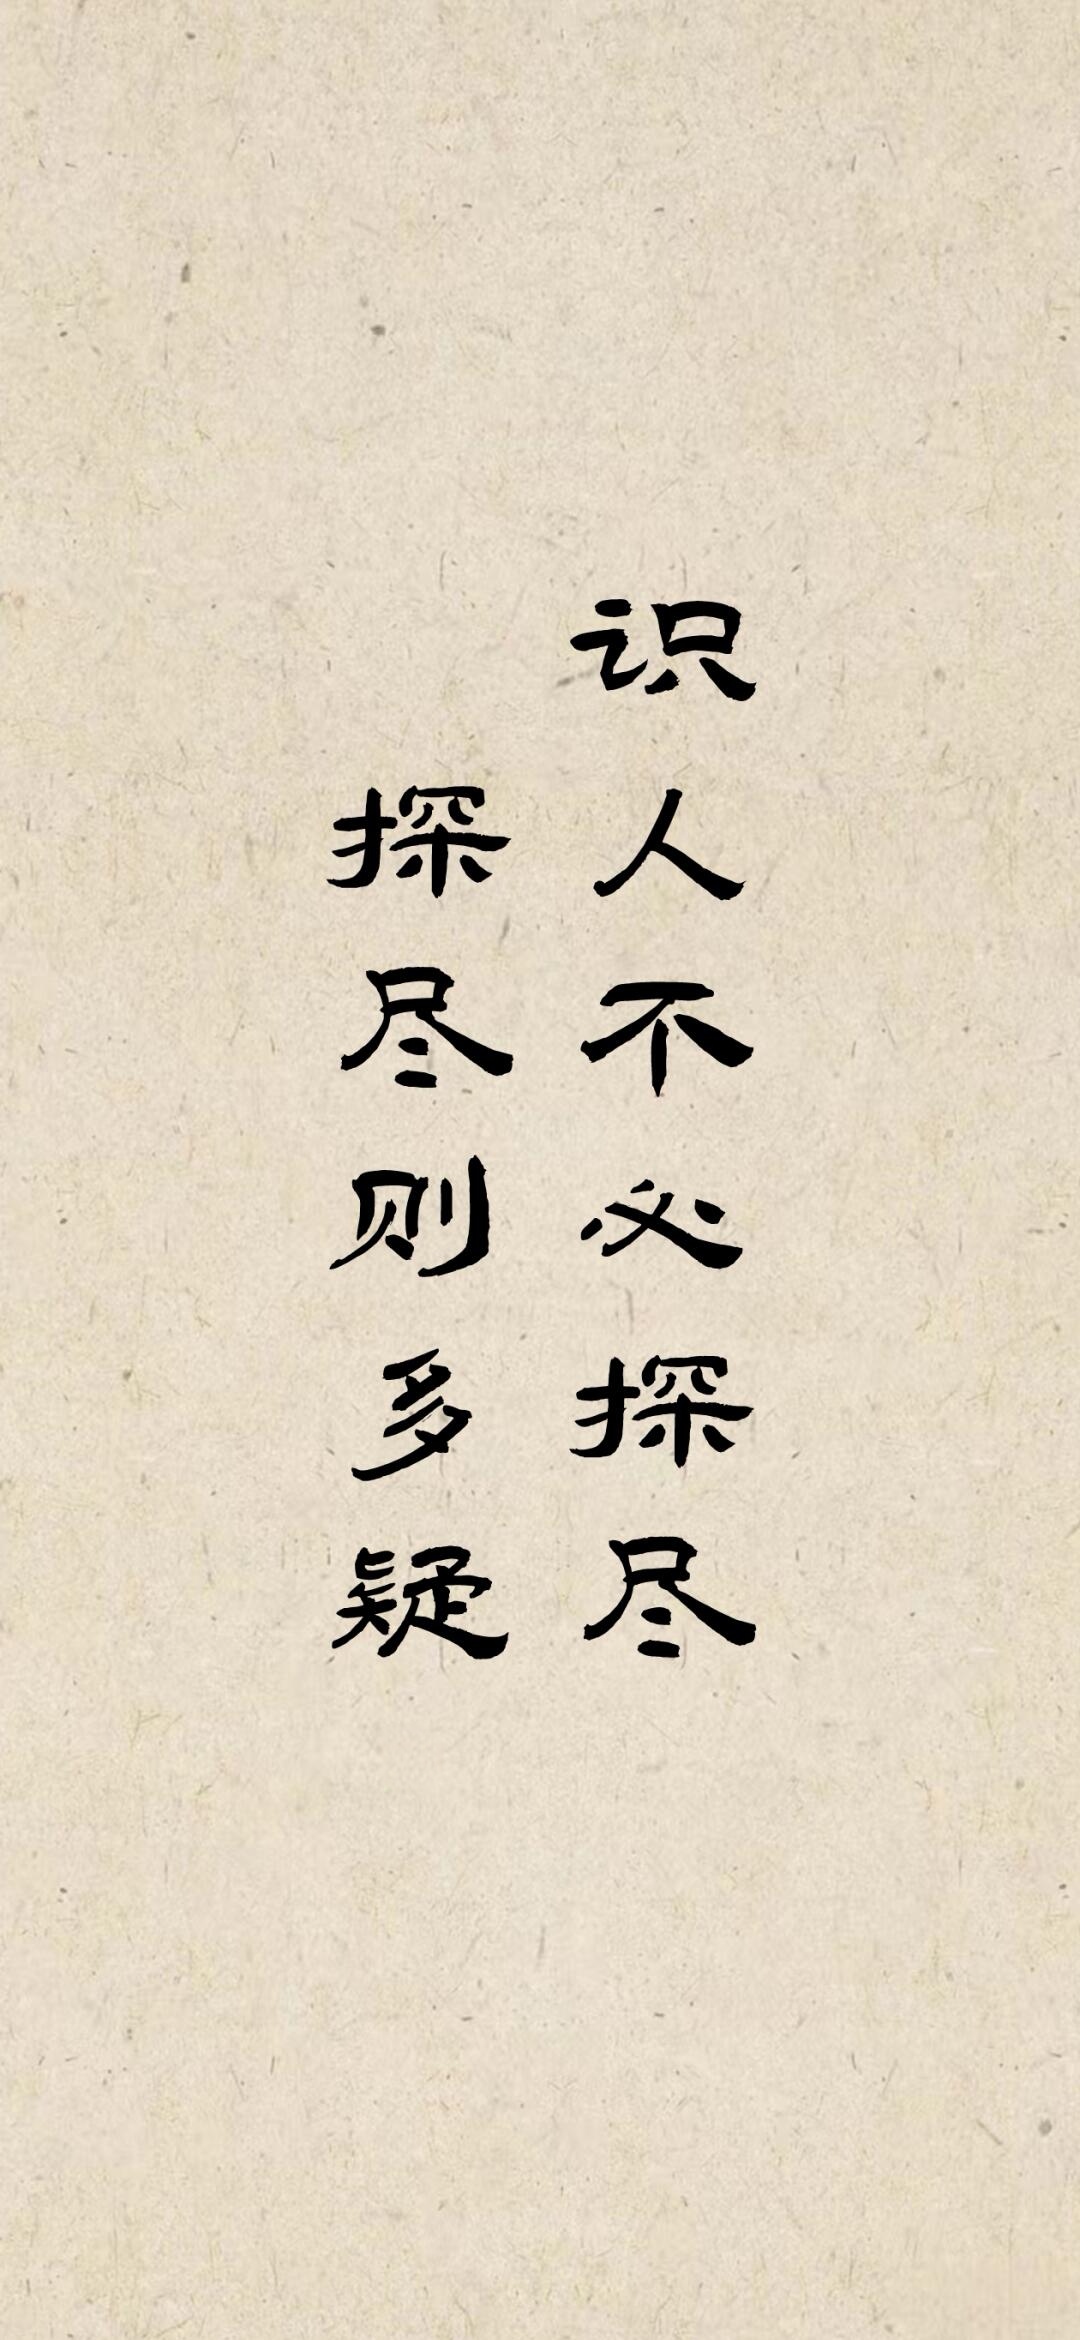 识人不必探尽
探尽则多疑